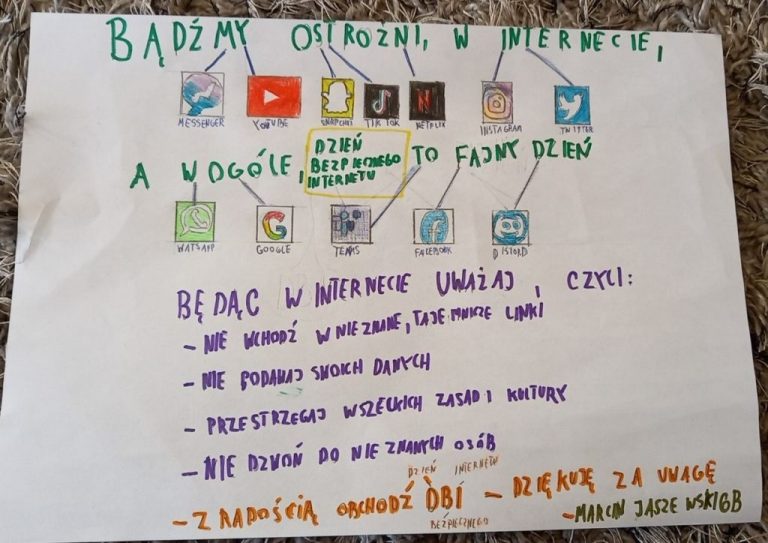 BĄDŹMY OSTROŻNI, W INTERNECIE,
MESSENGER YOUTUBE SNAPCHAT TIK TOK NETFLIX INSTAGRAM TWITTER
A WOGÓLE, DZIEŃ BEZPIECZNEGO INTERNETU TO FAJNY DZIEŃ
WATSAPP GOOGLE TEAMS FACEBOOK DISTORD
BĘDĄC W INTERNECIE UWAŻAJ, CZYLI:
- NIE WCHODŹ W NIEZNANE, TAJEMNICZE LINKI
- NIE PODAWAJ SWOICH DANYCH
- PRZESTRZEGAJ WSZELKICH ZASAD I KULTURY
- NIE DZWOŃ DO NIEZNANYCH OSÓB
DZIEŃ INTERNETU
- Z RADOŚCIĄ OBCHODŹ DBI - DZIĘKUJĘ ZA UWAGĘ
BEZPIECZNEGO
- MARCIN JASZEWSKI 6B